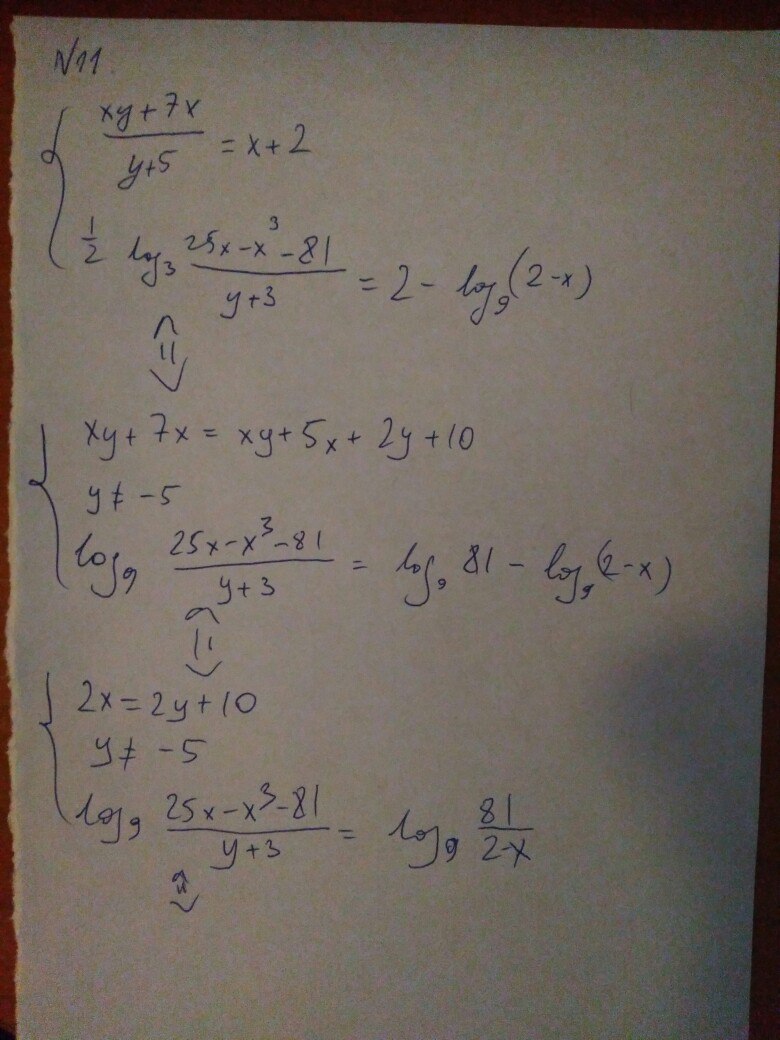 N11.
(xy + 7x)/(y+5) = x + 2
1/2 log₃ (25x - x³ - 81)/(y+3) = 2 - log₉(2-x)
⇔
xy + 7x = xy + 5x + 2y + 10
y ≠ -5
log₉ (25x - x³ - 81)/(y+3) = log₉ 81 - log₉(2-x)
⇔
2x = 2y + 10
y ≠ -5
log₉ (25x - x³ - 81)/(y+3) = log₉ 81/(2-x)
⇔